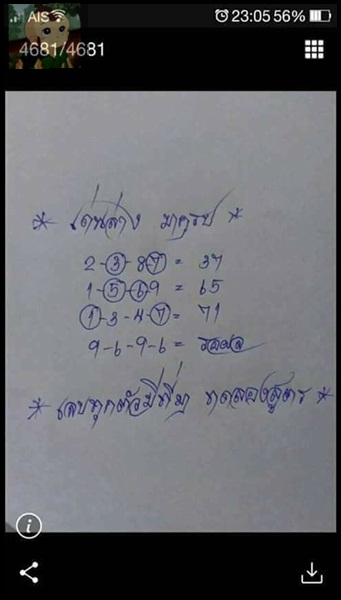 AIS 23:05 56%
4681/4681
* เด่นล่าง มาครบ *
2-3-8-7 = 37
1-5-6-9 = 65
1-3-4-7 = 71
9-6-9-6 = รอผล
* เลขทุกตัวมีที่มา ทดลองสูตร *